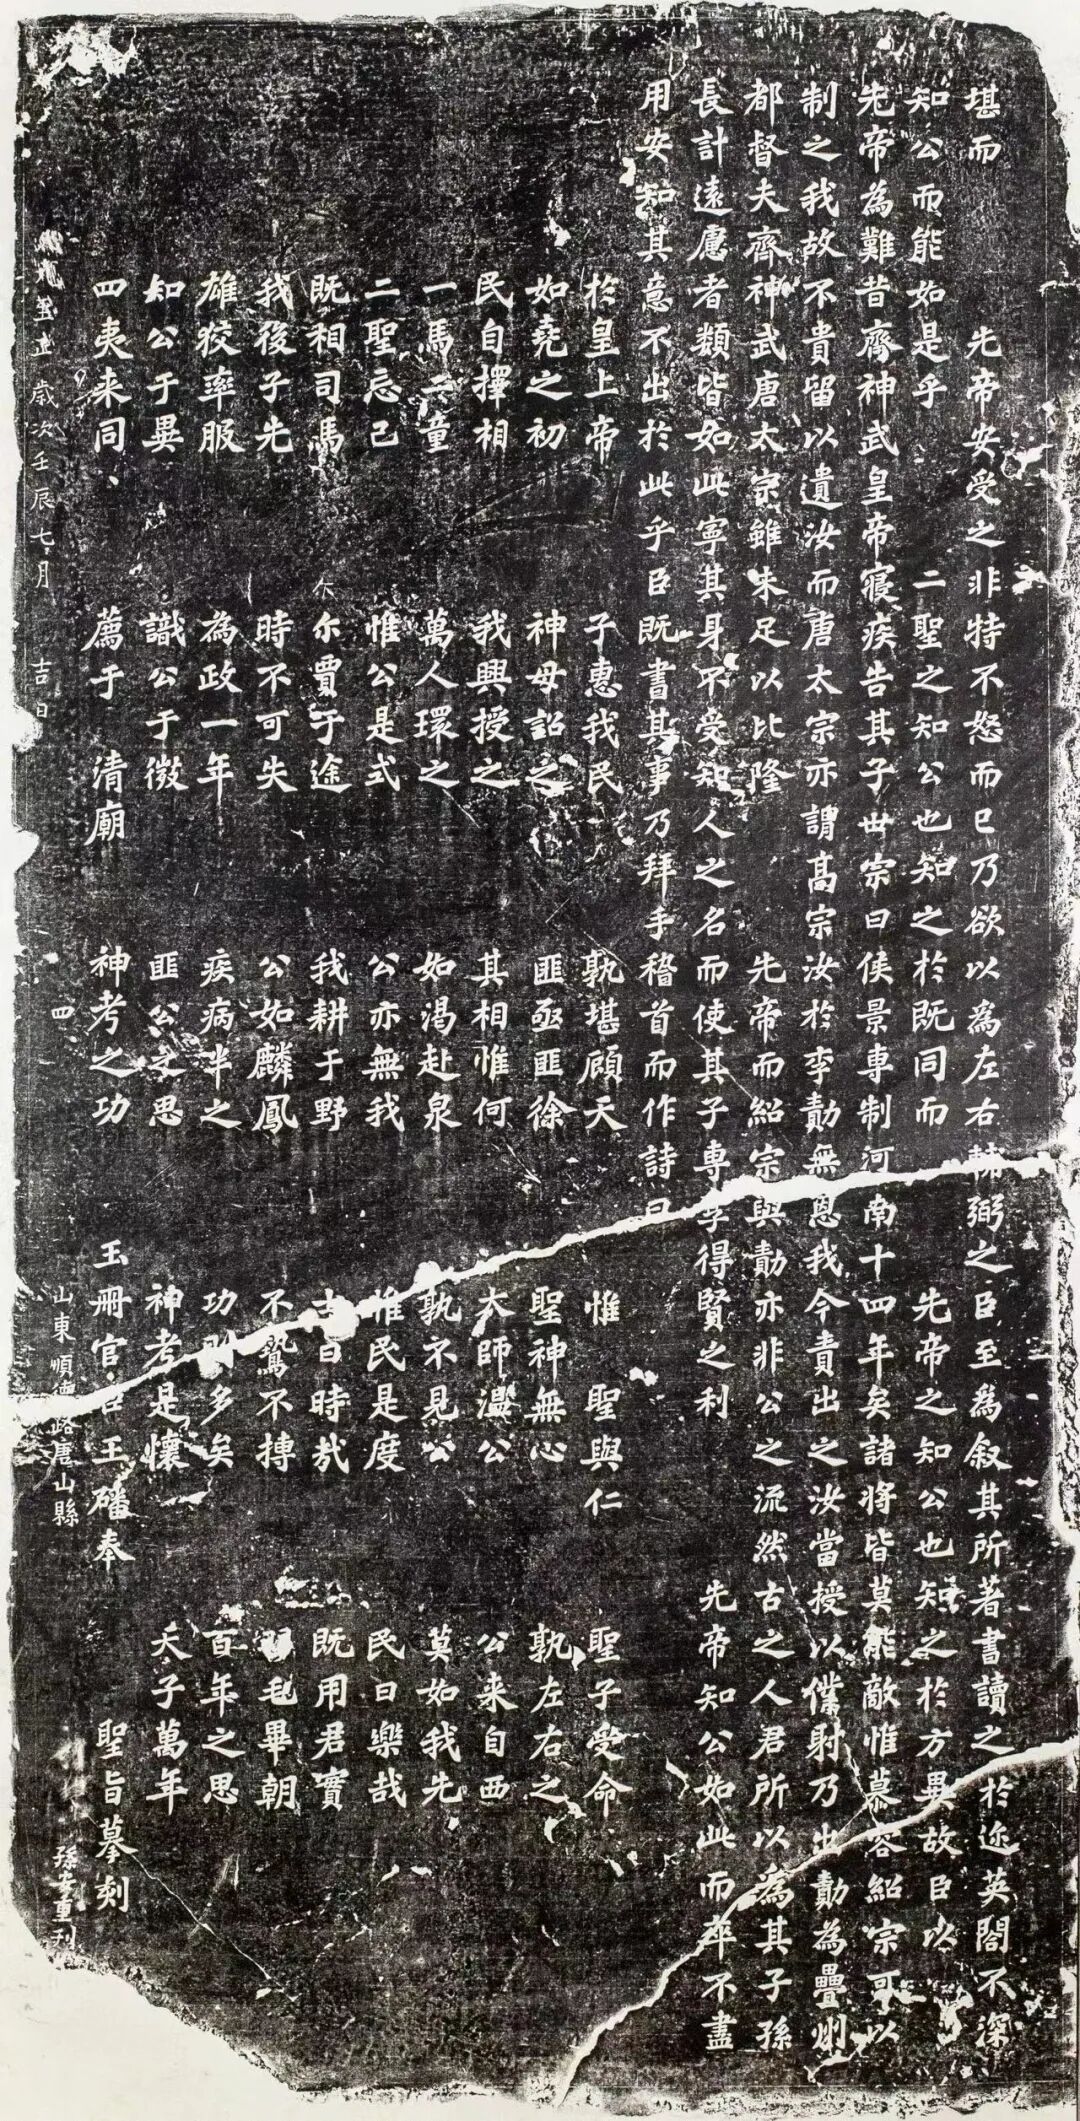 堪而　先帝安受之非特不怒而已乃欲以為左右輔弼之臣至為叙其所著書讀之於迩英閣不深
知公而能如是乎　二聖之知公也知之於既同而　先帝之知公也知之於方異故臣以
先帝為難昔齊神武皇帝寢疾告其子世宗曰侯景専制河南十四年矣諸将皆莫能敵惟慕容紹宗可以
制之我故不貴留以遺汝而唐太宗亦謂高宗汝於李勣無恩我今責出之汝當授以僕射乃出勣為疊州
都督夫齊神武唐太宗雖未足以比隆　先帝而紹宗與勣亦非公之流然古之人君所以為其子孫
長計遠慮者類皆如此寧其身不受知人之名而使其子専享得賢之利　先帝知公如此而卒不盡
用安知其意不出於此乎臣既書其事乃拜手稽首而作詩曰
於皇上帝　子惠我民　孰堪顧天　惟　聖與仁　聖子受命
如堯之初　神母詔之　匪亟匪徐　聖神無心　孰左右之
民自擇相　我興授之　其相惟何　太師溫公　公来自西
一馬二童　萬人環之　如渴赴泉　孰不見公　莫如我先
二聖忘己　惟公是式　公亦無我　惟民是度　民曰樂哉
既相司馬　尓賈于途　我耕于野　士曰時哉　既用君實
我後子先　時不可失　公如麟鳳　不鷙不搏　羽毛畢朝
雄狡率服　為政一年　疾病半之　功則多矣　百年之思
知公于異　識公于微　匪公之思　神考是懷　天子萬年
四夷来同　薦于　清廟　神考之功　玉冊官臣王磻奉　聖旨摹刻
歲次壬辰七月　吉日　四　山東順德路唐山縣　孫安重刊